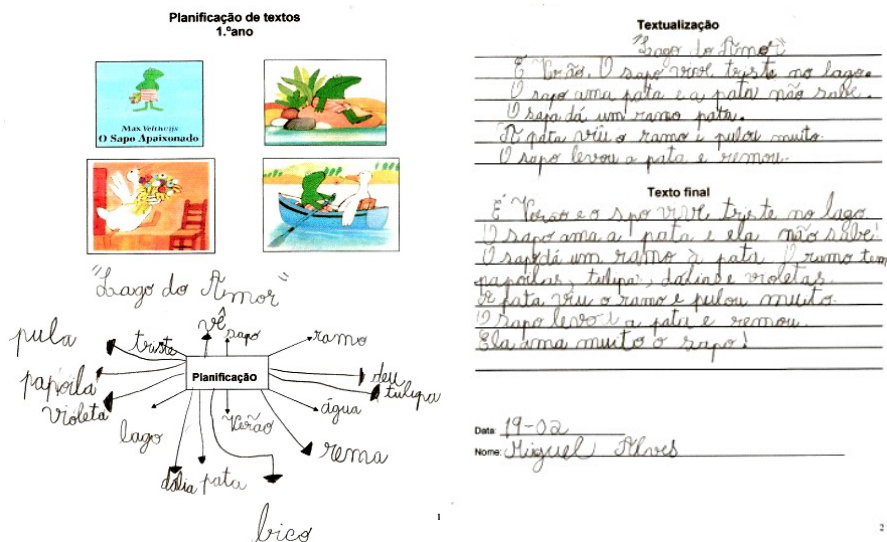 Planificação de textos
1.ºano
Max Velthuijs
O Sapo Apaixonado
"Lago do Amor"
pula
triste
vê
sapo
ramo
papoila
Planificação
deu
tulipa
violeta
lago
Verão
água
rema
dália
pata
bico
1
Textualização
"Lago do Amor"
É Verão. O sapo vive triste no lago.
O sapo ama pata e a pata não sabe.
O sapo dá um ramo pata.
A pata viu o ramo e pulou muito.
O sapo levou a pata e remou.
Texto final
É Verao e o spo vive triste no lago
O sapo ama a pata e ela não sabe!
O sapo dá um ramo à pata. O ramo tem
papoilas, tulipa, dálias e violetas.
A pata viu o ramo e pulou muito.
O sapo levo a pata e remou.
Ela ama muito o sapo!
Data: 19-02
Nome: Miguel Alves
2